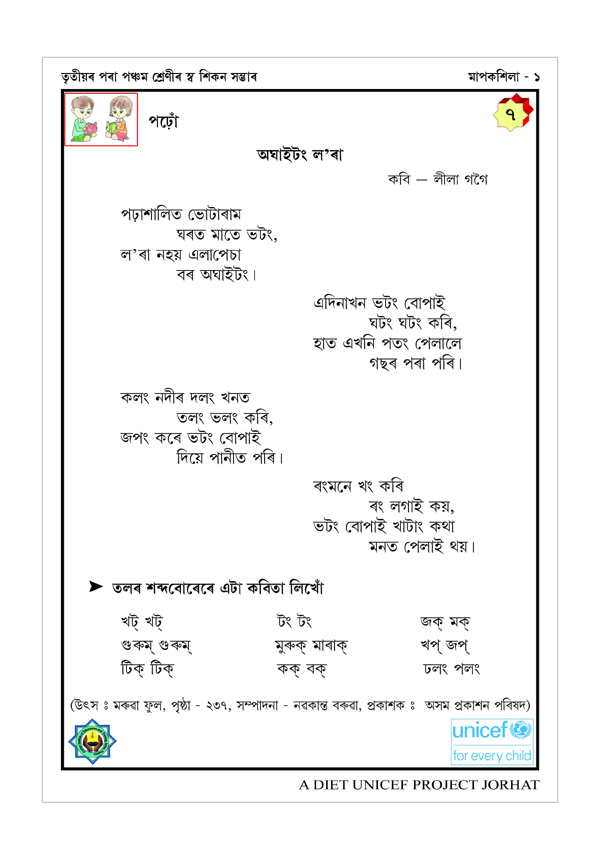 তৃতীয়ৰ পৰা পঞ্চম শ্ৰেণীৰ স্ব শিকন সম্ভাৰ
মাপকশিলা - ১
৭
পঢ়োঁ
অঘাইটং ল’ৰা
কবি – লীলা গগৈ
পঢ়াশালিত ভোটাৰাম
ঘৰত মাতে ভটং,
ল’ৰা নহয় এলাপেচা
বৰ অঘাইটং।
এদিনাখন ভটং বোপাই
ঘটং ঘটং কৰি,
হাত এখনি পতং পেলালে
গছৰ পৰা পৰি।
কলং নদীৰ দলং খনত
তলং ভলং কৰি,
জপং কৰে ভটং বোপাই
দিয়ে পানীত পৰি।
ৰংমনে খং কৰি
ৰং লগাই কয়,
ভটং বোপাই খাটাং কথা
মনত পেলাই থয়।
➤ তলৰ শব্দবোৰেৰে এটা কবিতা লিখোঁ
খট্ খট্ টং টং জক্ মক্
গুৰুম্ গুৰুম্ মুৰুক্ মাৰাক্ খপ্ জপ্
টিক্ টিক্ কক্ বক্ ঢলং পলং
(উৎস ঃ মৰুৱা ফুল, পৃষ্ঠা - ২৩৭, সম্পাদনা - নৱকান্ত বৰুৱা, প্ৰকাশক ঃ অসম প্ৰকাশন পৰিষদ)
unicef
for every child
A DIET UNICEF PROJECT JORHAT